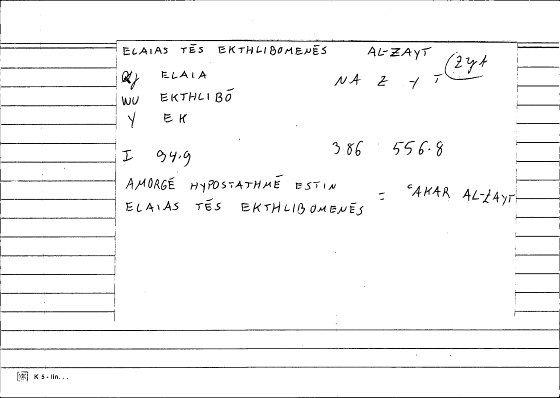 ELAIAS TĒS EKTHLIBOMENĒS AL-ZAYT
zyt
ELAIA NA Z Y T
WU EKTHLIBŌ
Y EK
I 94.9 386 556.8
AMORGĒ HYPOSTATHMĒ ESTIN
ELAIAS TĒS EKTHLIBOMENĒS = ʿAKAR AL-ZAYT
K5-lin...